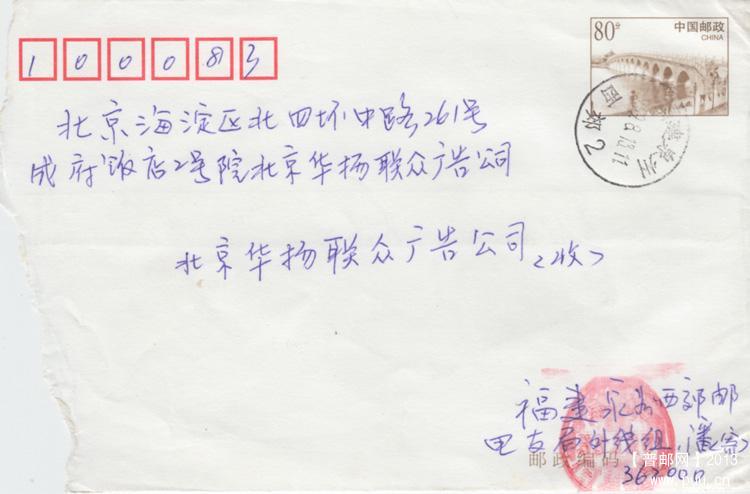 100083
80分
中国邮政
CHINA
北京海淀区北四环中路261号
成府饭店2号院北京华扬联众广告公司
北京华扬联众广告公司（收）
福建泉州西郊邮
电支局外线组,潘(寄)
邮政编码
362000
西郊2
【普邮网】2013